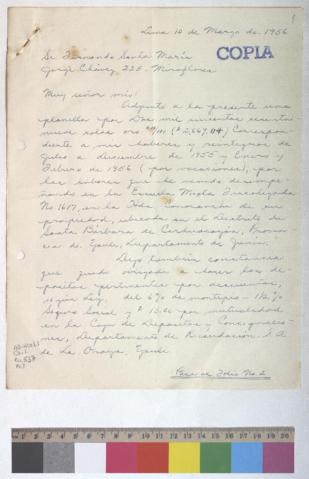 Lima 10 de Marzo de 1956
COPIA
Sr Fernando Santa María
Jorge Chávez, 225 - Miraflores
Muy señor mío:
Adjunto a la presente una
planilla por Dos mil
nueve soles oro ($ 2,669.04) correspon-
diente a mis haberes y reintegros de
Julio a diciembre de 1955 y Enero y
Febrero de 1956 (por vacaciones), por
las labores que he venido desempe-
ñando en la Escuela Mixta Fiscalizada
No 1617, en la Hda de su
propiedad, ubicada en el Distrito de
Santa Bárbara de Carhuacayán, Provin-
cia de Yauli, Departamento de Junín.
Dejo también constancia
que quedo obligada a hacer los de-
pósitos pertinentes por descuentos,
según Ley, del 6% de montepío - 1½ %
Seguro Social y $ 15.00 por mutualidad
en la Caja de Depósitos y Consignacio-
nes, Departamento de Recaudación. S.A.
de La Oroya, Yauli
Pasa al Folio No. 2